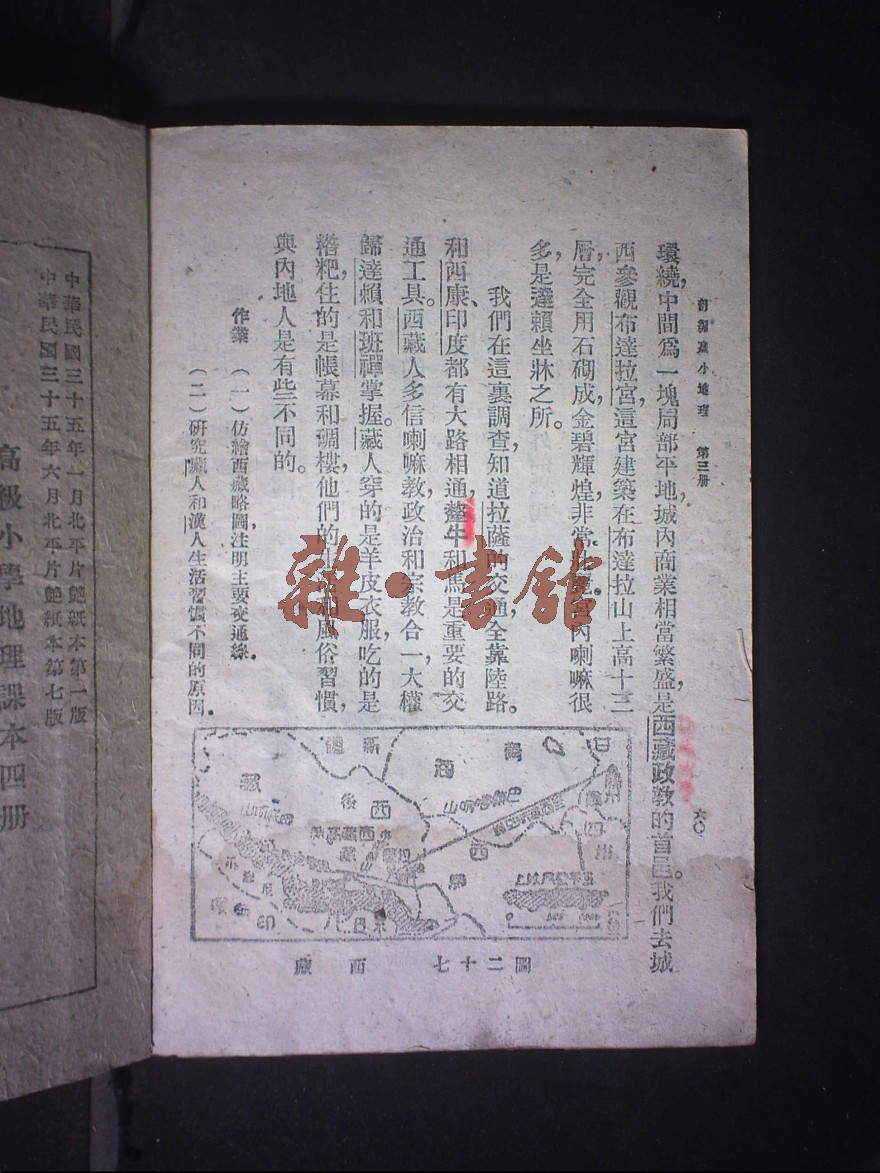 高級小地理 第三册
六〇
環繞，中間爲一塊局部平地，城內商業相當繁盛，是西藏政敎的首邑。我們去城
西參觀布達拉宮，這宮建築在布達拉山上，高十三
層，完全用石砌成，金碧輝煌，非常麗，宮內喇嘛很
多，是達賴坐牀之所。
我們在這裏調查，知道拉薩的交通，全靠陸路。
和西康、印度都有大路相通，犛牛和馬是重要的交
通工具。西藏人多信喇嘛敎，政治和宗敎合一，大權
歸達賴和班禪掌握。藏人穿的是羊皮衣服，吃的是
糌粑，住的是帳幕和碉樓，他們的風俗習慣，
與內地人是有些不同的。
作業 （一）仿繪西藏略圖，注明主要交通線。
（二）硏究藏人和漢人生活習慣不同的原因。
圖二十七 西藏
雜·書館
中華民國三十五年一月北平片艶紙本第一版
中華民國三十五年六月北平片艶紙本第七版
高級小學地理課本四册